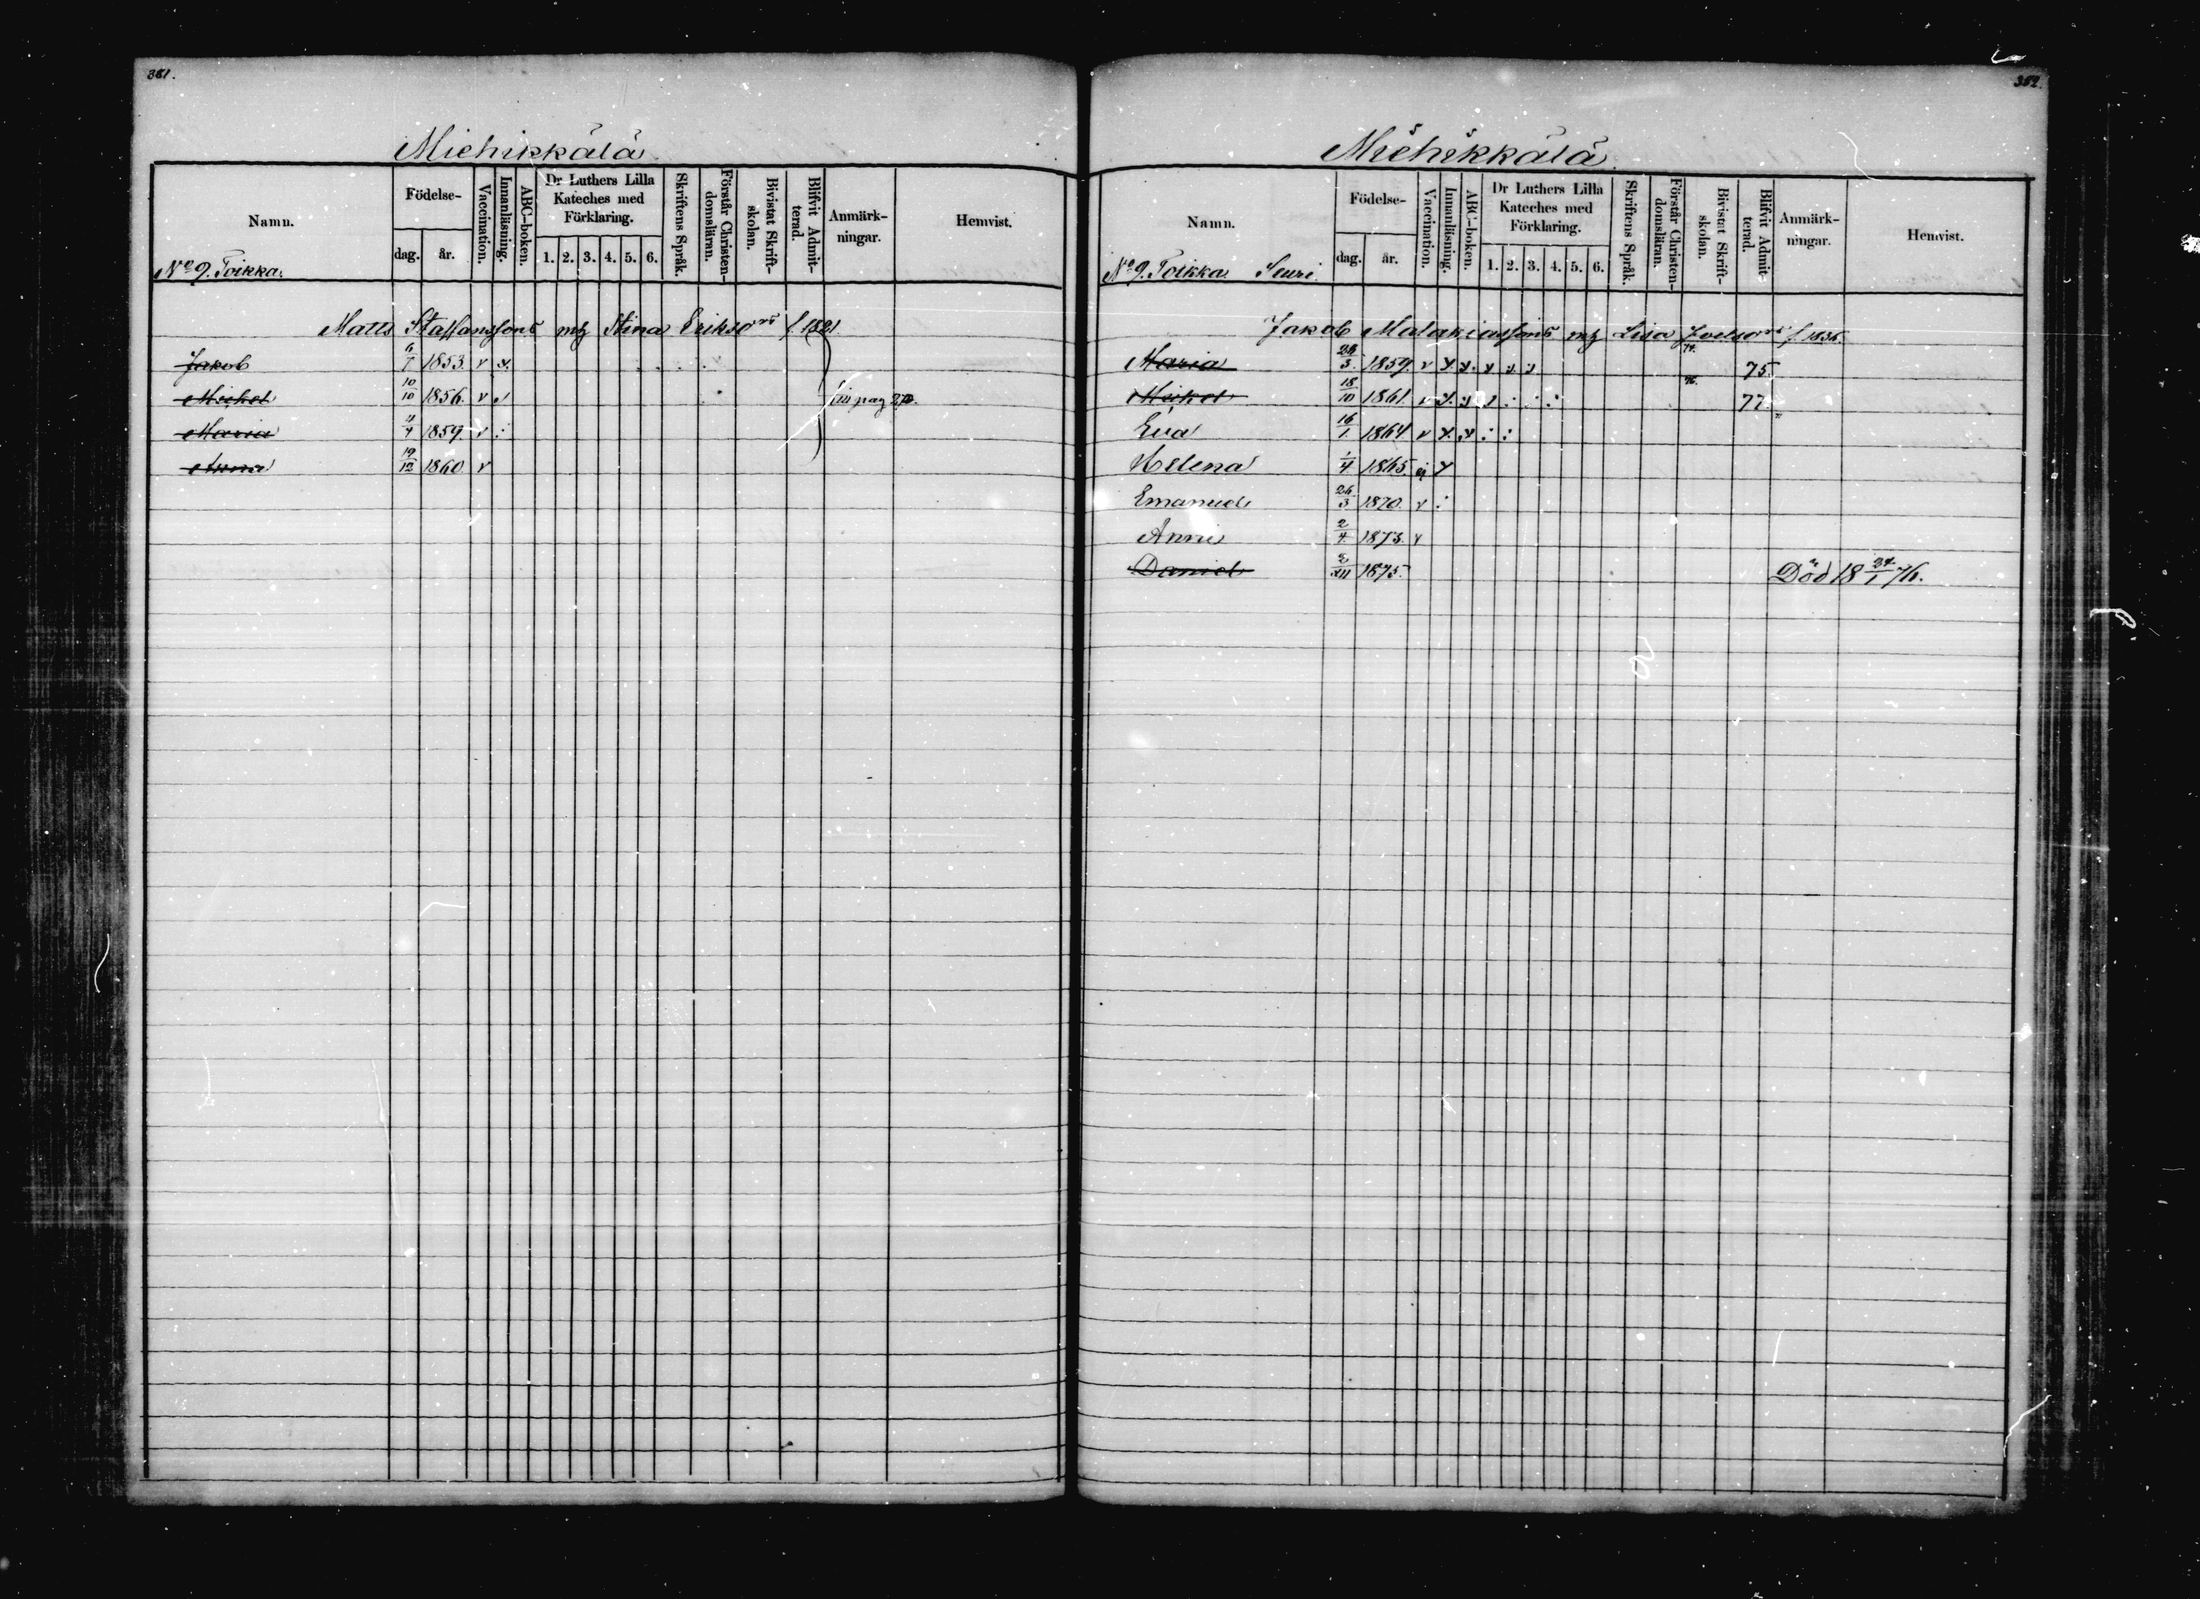 381.
Miehikkälä
Namn.
Födelse-
dag. år.
Vaccination.
Innanläsning.
ABC-boken.
Dr Luthers Lilla Kateches med Förklaring.
1. 2. 3. 4. 5. 6.
Skriftens Språk.
Förstår Christendomsläran.
Bivistat Skriftskolan.
Blifvit Admitterad.
Anmärkningar.
Hemvist.
No 9. Toikka.
Matts Staffanssons mh Stina Eriksdrs f. 1821
Jakob 6/7 1853. v x.
Michel 10/10 1856. v
Maria 4/4 1859 v :
Anna 19/12 1860 v
382.
Miehikkälä
Namn.
Födelse-
dag. år.
Vaccination.
Innanläsning.
ABC-boken.
Dr Luthers Lilla Kateches med Förklaring.
1. 2. 3. 4. 5. 6.
Skriftens Språk.
Förstår Christendomsläran.
Bivistat Skriftskolan.
Blifvit Admitterad.
Anmärkningar.
Hemvist.
No 9. Toikka Seuri.
Jakob Malakiassons mh Lisa f. 1836.
Maria 26/3 1859 v 74. 75.
Michel 18/10 1861. v 76. 77.
Eva 16/1 1864 v
Helena 1/4 1865. ej
Emanuel 26/3 1870. v :
Anni 2/4 1873. v
Daniel 2/XII 1875. Död 18 24/1 76.